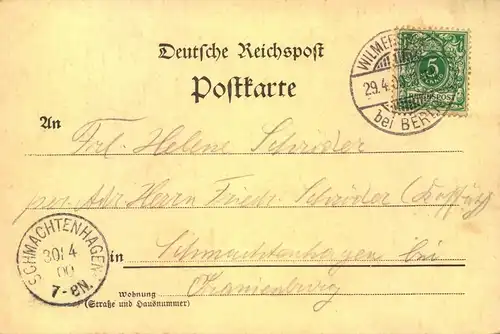 Deutsche Reichspost
Postkarte
WILMERS
29.4.00
bei BERL
5
An
Frl. Helene Schröder
per Adr. Herrn Friedr. Schröder
SCHMACHTENHAGEN
30/4
00
7-8N.
in
Schmachtenhagen bei
Oranienburg
Wohnung
(Straße und Hausnummer)